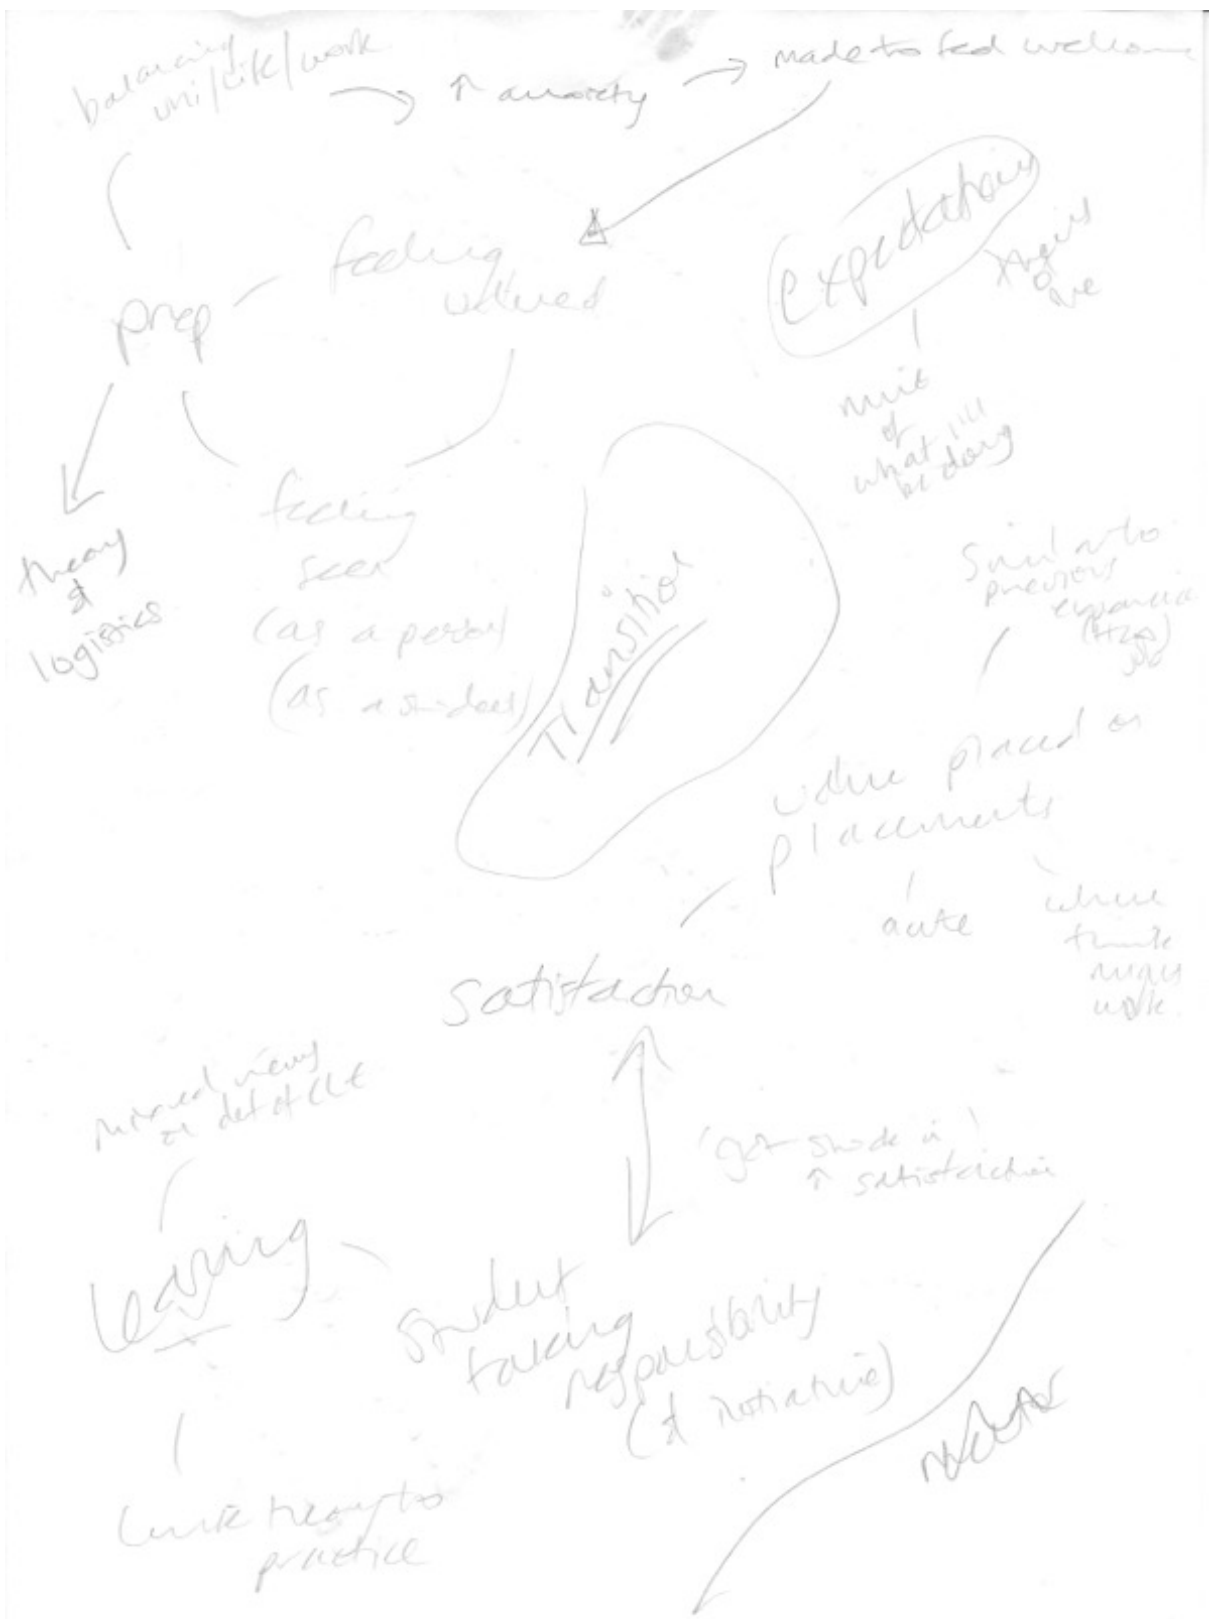 balancing
uni/life/work
↑ anxiety
made to feel welcome
feeling
valued
expectations
prep
of
what I'll
be doing
theory
&
logistics
feeling
seen
(as a person)
(as a student)
Transition
Similar to
previous
experience
(HCA)
job
where placed on
placements
acute
where
think
might
work
satisfaction
mixed views
on def of CLE
'get stuck in'
↑ satisfaction
learning
student
taking
responsibility
(& initiative)
link theory to
practice